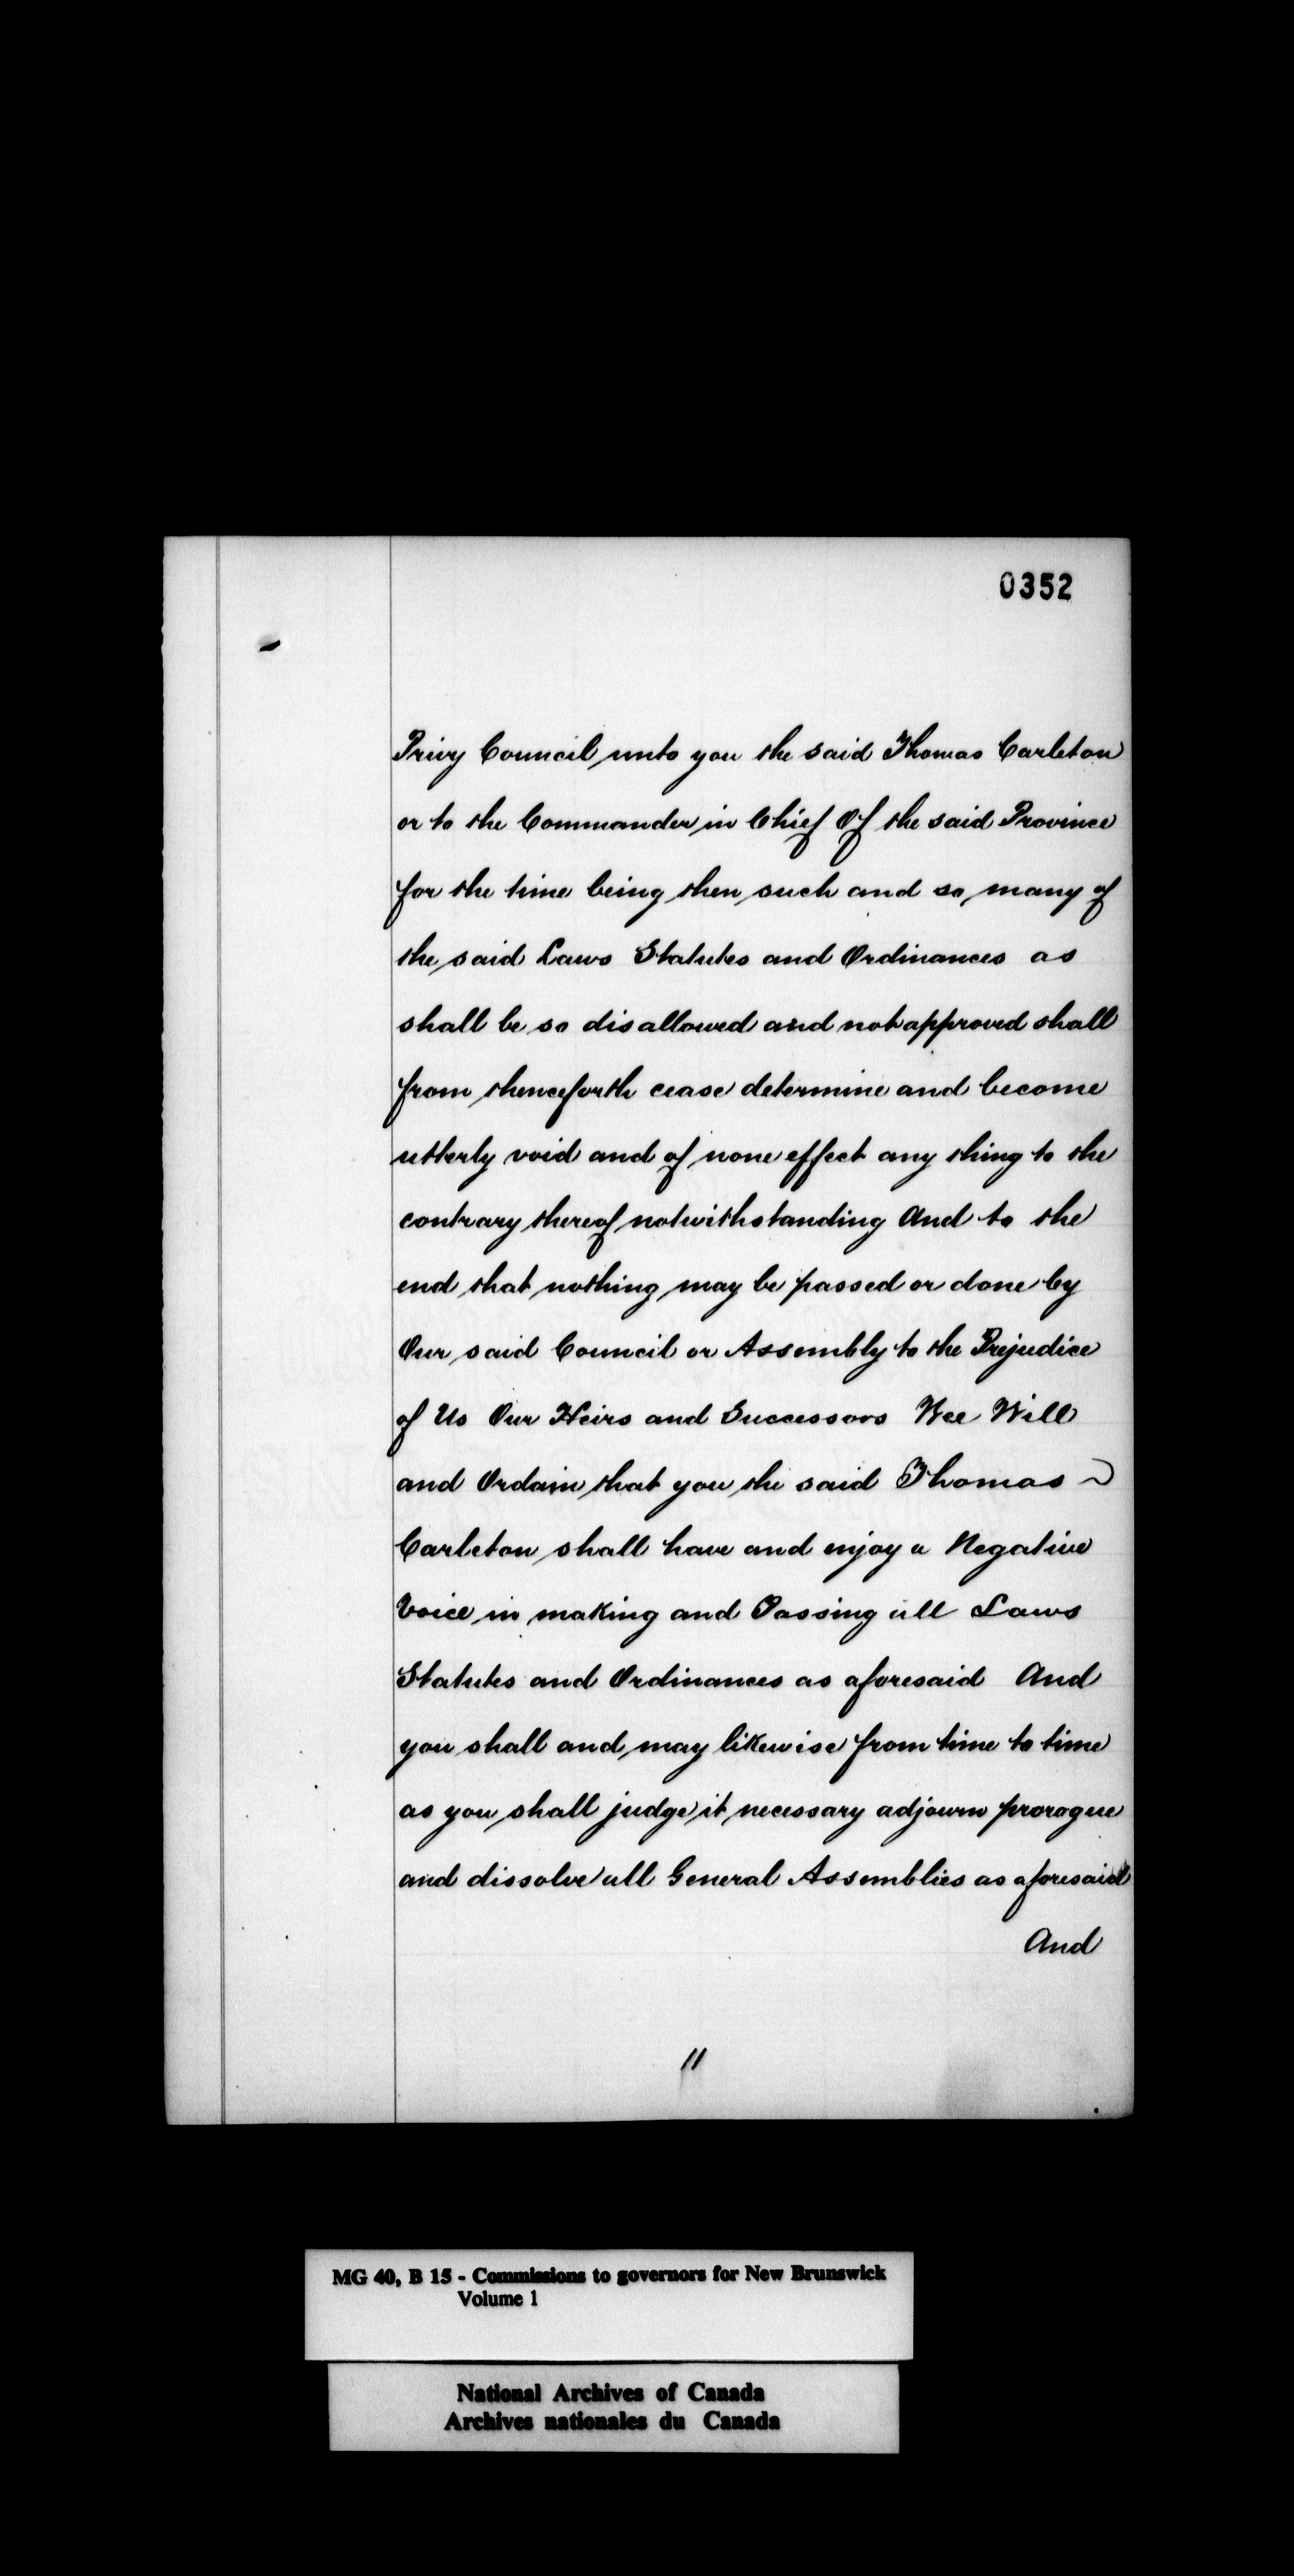 0352
Privy Council unto you the said Thomas Carleton
or to the Commander in Chief Of the said Province
for the time being then such and so many of
the said Laws Statutes and Ordinances as
shall be so disallowed and not approved shall
from thenceforth cease determine and become
utterly void and of none effect any thing to the
contrary thereof notwithstanding And to the
end that nothing may be passed or done by
Our said Council or Assembly to the Prejudice
of Us Our Heirs and Successors Wee Will
and Ordain that you the said Thomas
Carleton shall have and enjoy a Negative
Voice in making and Passing all Laws
Statutes and Ordinances as aforesaid And
you shall and may likewise from time to time
as you shall judge it necessary adjourn prorogue
and dissolve all General Assemblies as aforesaid
And
11
MG 40, B 15 - Commissions to governors for New Brunswick
Volume 1
National Archives of Canada
Archives nationales du Canada